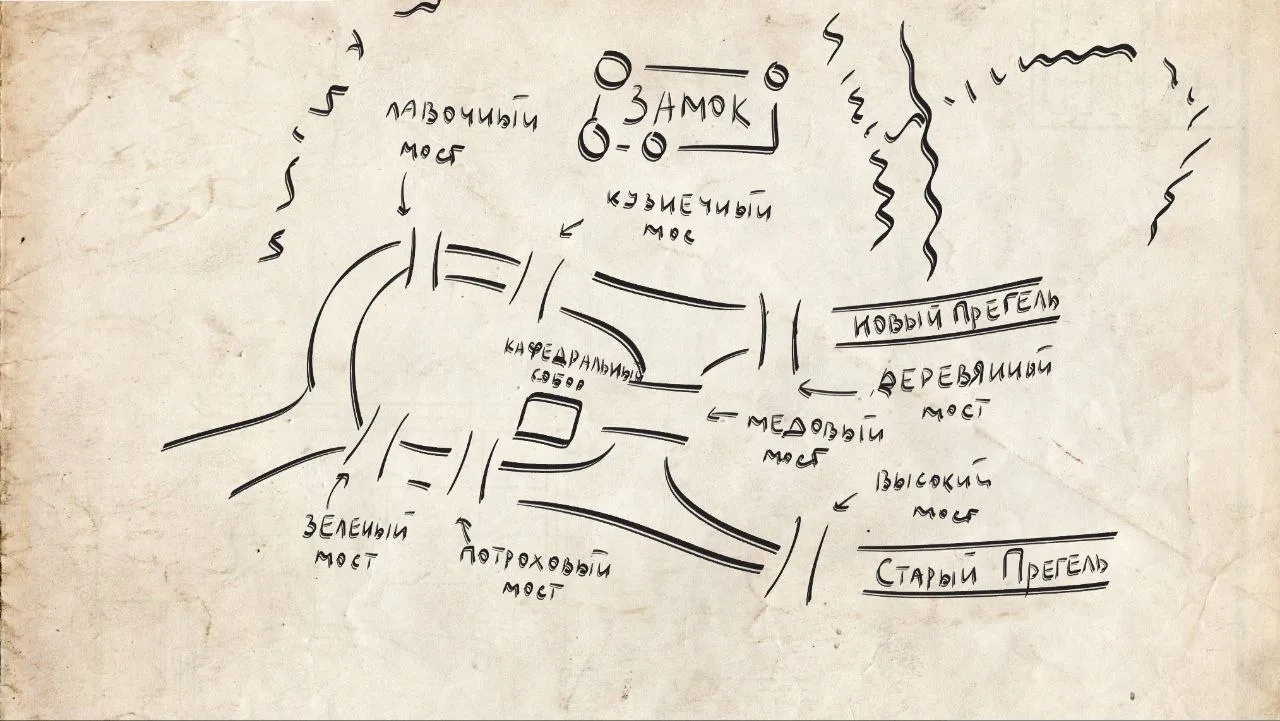 ЛАВОЧНЫЙ
МОСТ
ЗАМОК
КУЗНЕЧНЫЙ
МОС
НОВЫЙ ПРЕГЕЛЬ
КАФЕДРАЛЬНЫЙ
СОБОР
ДЕРЕВЯННЫЙ
МОСТ
МЕДОВЫЙ
МОСТ
ВЫСОКИЙ
МОСТ
ЗЕЛЕНЫЙ
МОСТ
ПОТРОХОВЫЙ
МОСТ
СТАРЫЙ ПРЕГЕЛЬ